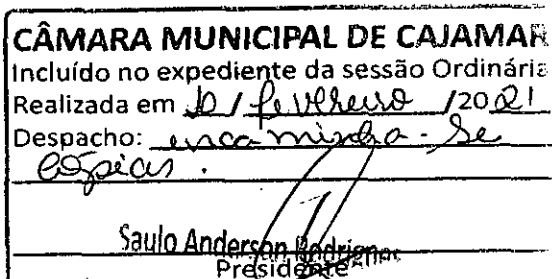 CÂMARA MUNICIPAL DE CAJAMAR
Incluído no expediente da sessão Ordinária
Realizada em 10 / fevereiro /2021
Despacho: encaminha-se
cópias.
Saulo Anderson Rodrigues
Presidente